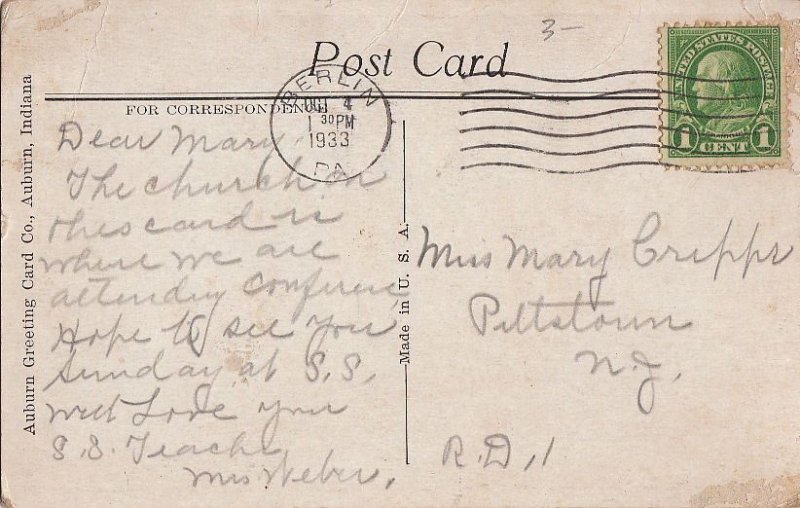 3-
Post Card
FOR CORRESPONDENCE
BERLIN
OCT 4
1 30PM
1933
PA.
UNITED STATES POSTAGE
1 1
CENT
Dear Mary
The church on
this card is
where we are
attending Conference
Hope to see you
Sunday at S.S.
with Love your
S.S. Teacher
Mrs Weber,
Miss Mary Cripps
Pittstown
N.J.
R.D, 1
Made in U. S. A.
Auburn Greeting Card Co., Auburn, Indiana